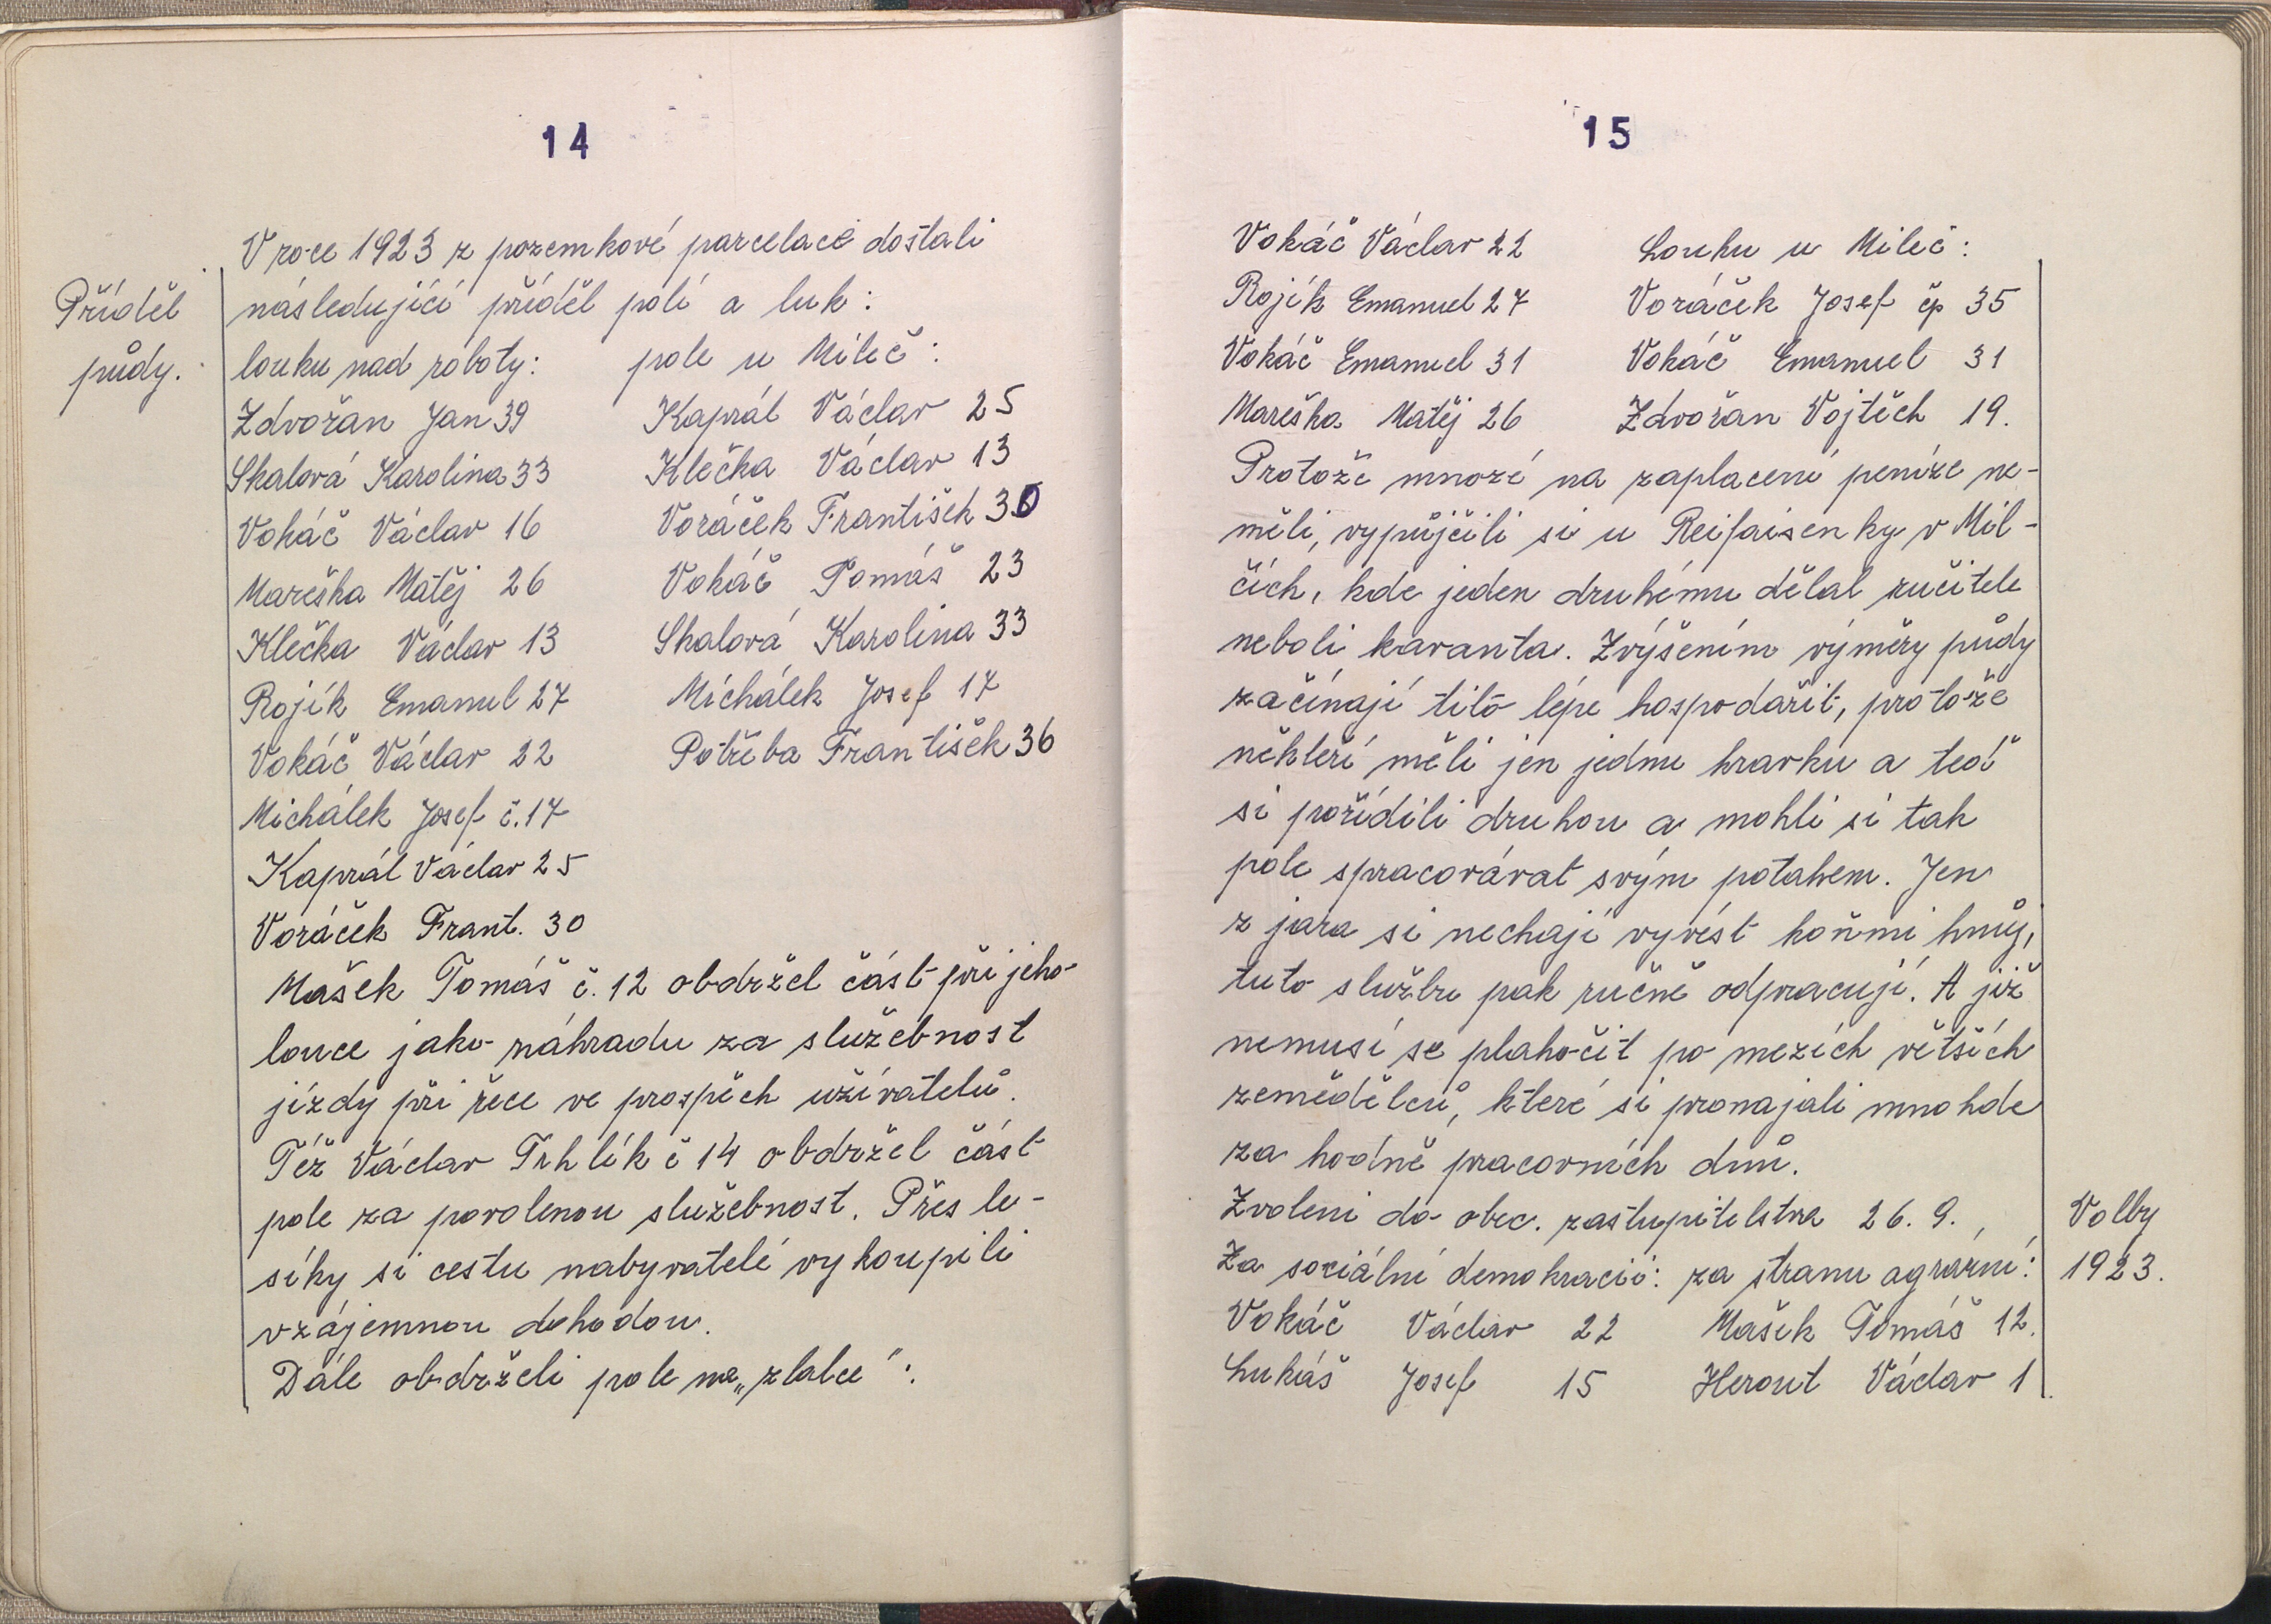 14
V roce 1923 z pozemkové parcelace dostali
Příděl
půdy.
následující příděl polí a luk:
louku nad roboty: pole u Mileč:
Zdvořan Jan 39 Kaprál Václav 25
Skalová Karolina 33 Klečka Václav 13
Vokáč Václav 16 Voráček František 30
Mareška Matěj 26 Vokáč Tomáš 23
Klečka Václav 13 Skalová Karolina 33
Rojík Emanuel 27 Michálek Josef 17
Vokáč Václav 22 Potřeba František 36
Michálek Josef č. 17
Kaprál Václav 25
Voráček Frant. 30
Mašek Tomáš č. 12 obdržel část při jeho
louce jako náhradu za služebnost
jízdy při řece ve prospěch uživatelů.
Též Václav Trhlík č 14 obdržel část
pole za povolenou služebnost. Přes le-
síky si cestu nabyvatelé vykoupili
vzájemnou dohodou.
Dále obdrželi pole na „zlatce":
15
Vokáč Václav 22 Louku u Mileč:
Rojík Emanuel 27 Voráček Josef čp 35
Vokáč Emanuel 31 Vokáč Emanuel 31
Mareška Matěj 26 Zdvořan Vojtěch 19.
Protože mnozí na zaplacení peníze ne-
měli, vypůjčili si u Reifaisenky v Mil-
čích, kde jeden druhému dělal ručitele
neboli kavanta. Zvýšením výměry půdy
začínají tito lépe hospodařit, protože
někteří měli jen jednu kravku a teď
si pořídili druhou a mohli si tak
pole spracovávat svým potahem. Jen
z jara si nechají vyvést koňmi hnůj,
tuto službu pak ručně odpracují. A již
nemusí se plahočit po mezích větších
zemědělců, které si pronajali mnohde
za hodně pracovních dnů.
Zvoleni do obec. zastupitelstva 26. 9.,
Volby
1923.
Za sociální demokracii: za stranu agrární:
Vokáč Václav 22 Mašek Tomáš 12.
Lukáš Josef 15 Herout Václav 1.